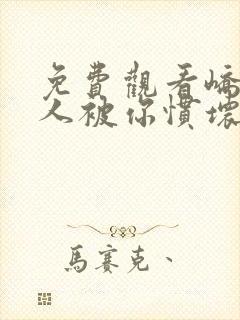 免費觀看嬌
人被你慣壞
馬賽克、